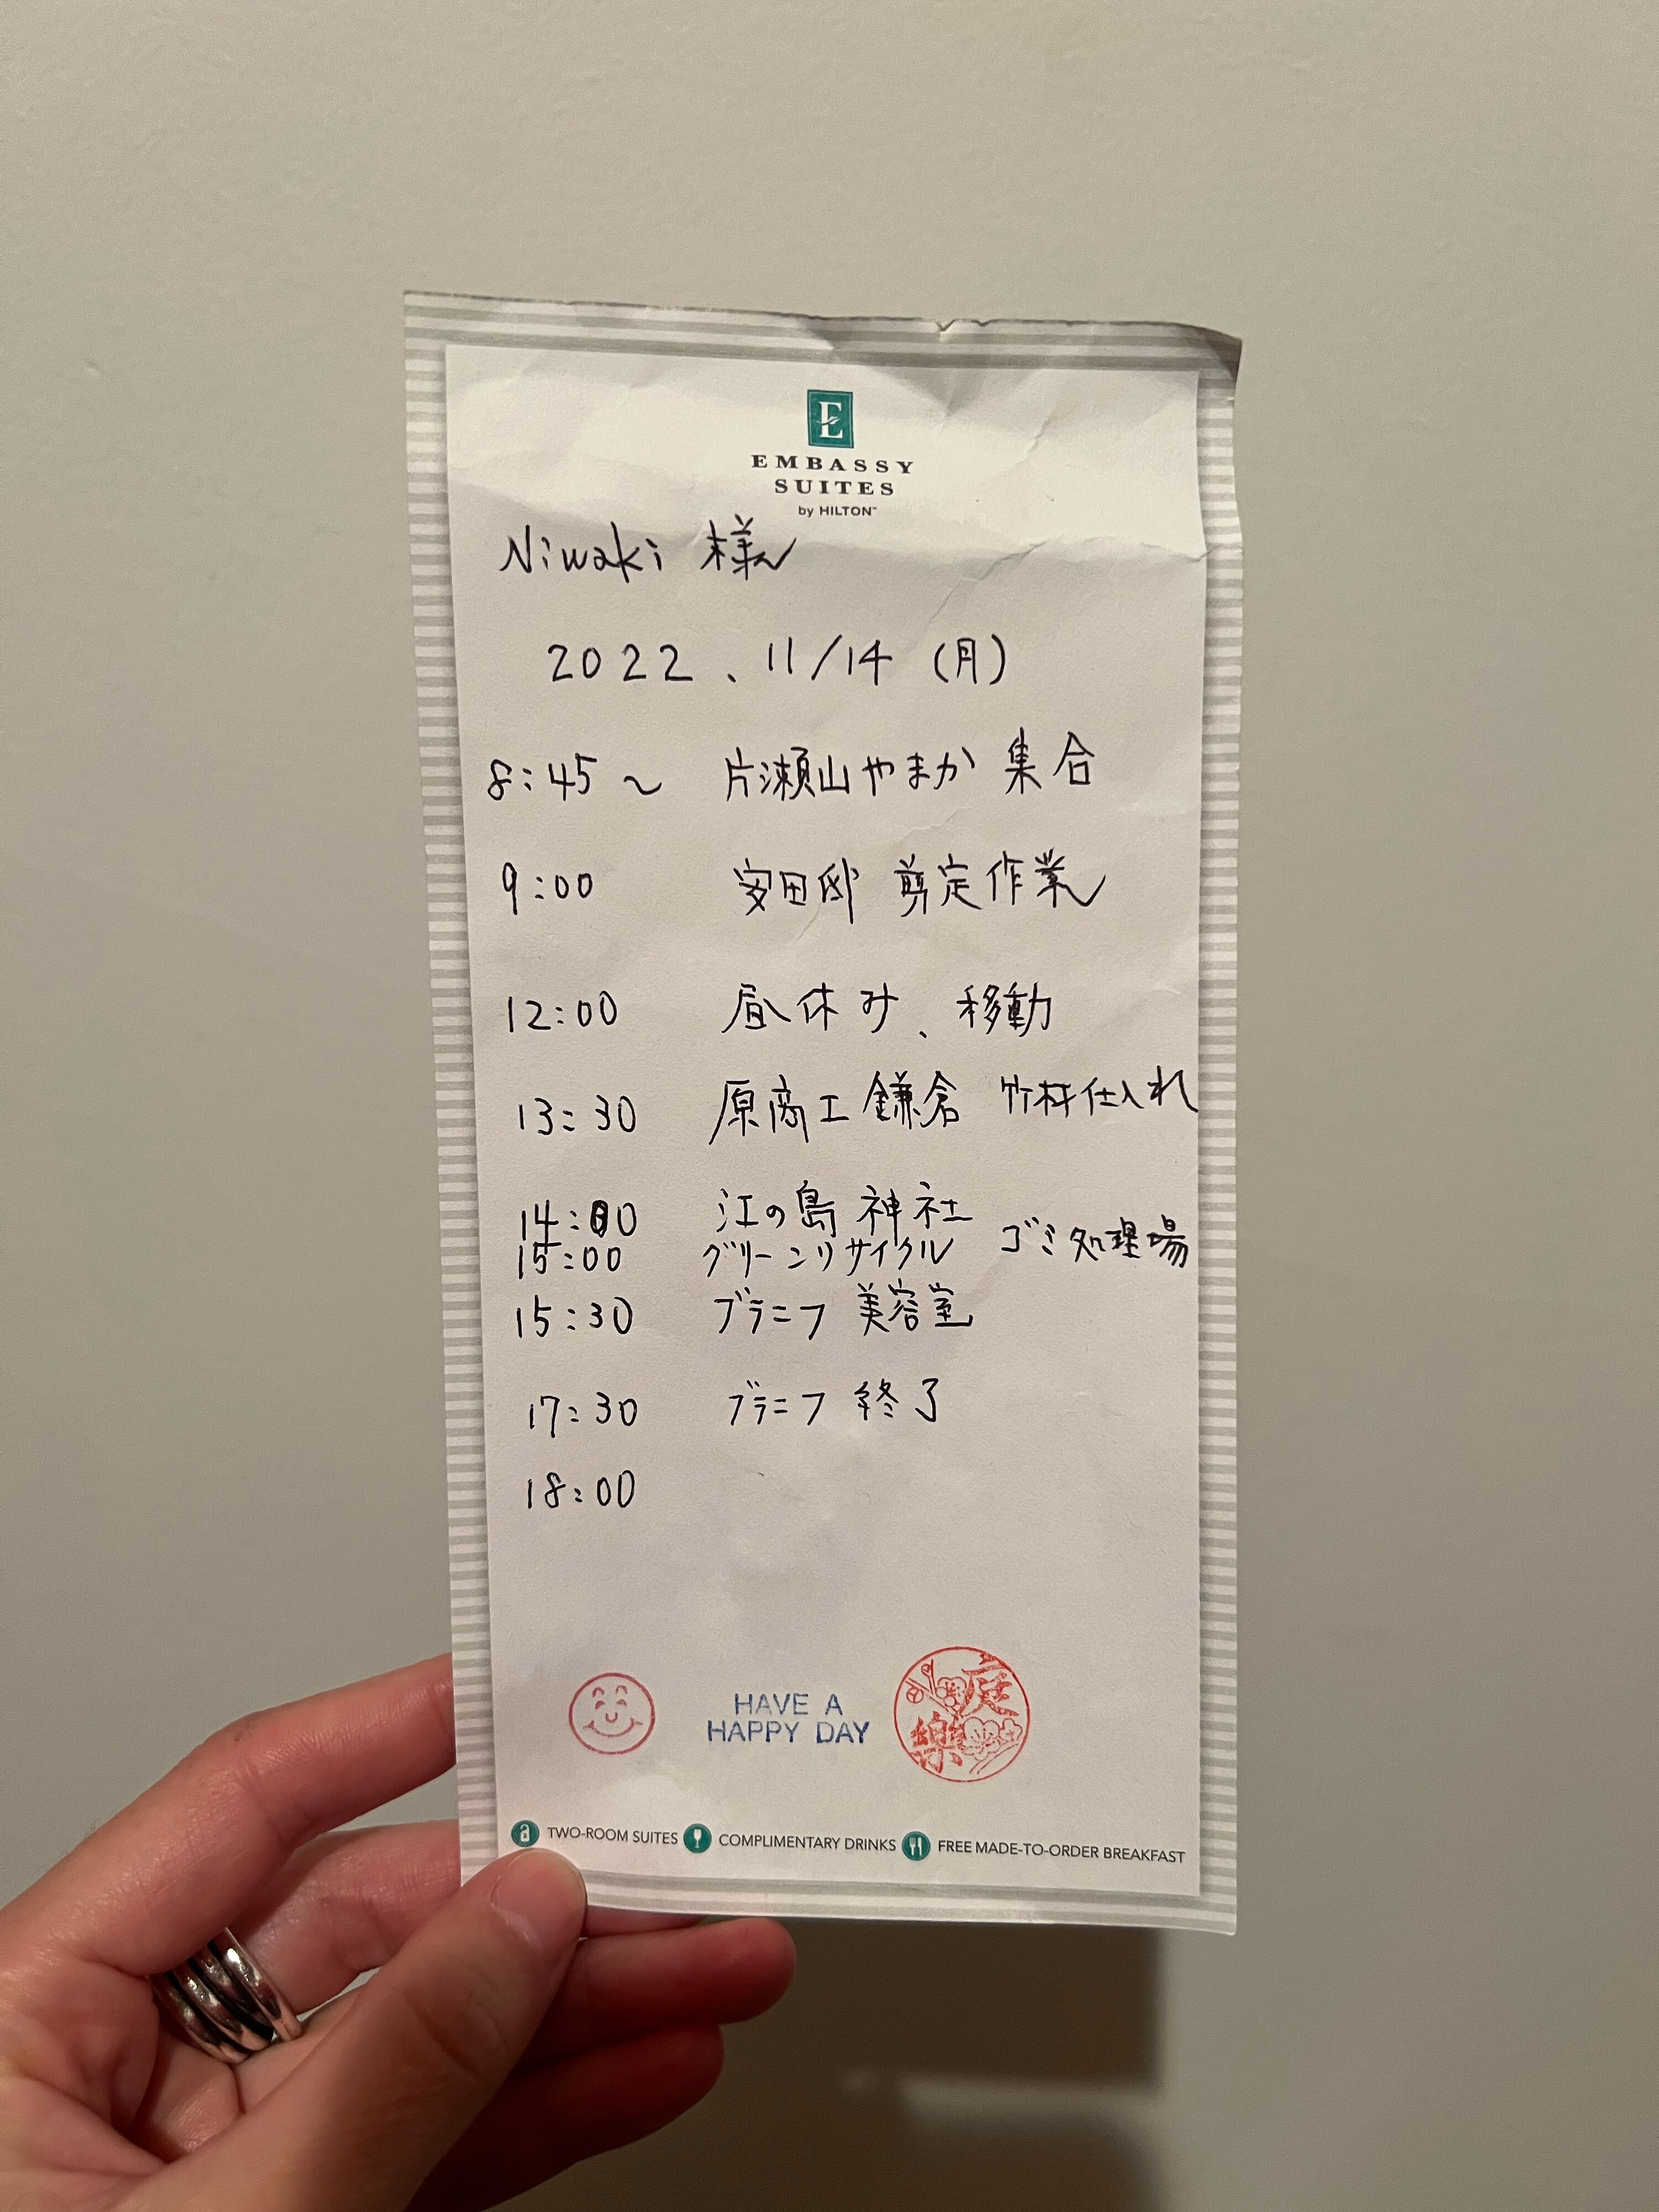 E
EMBASSY
SUITES
by HILTON™
Niwaki 様
2022、11/14 (月)
8:45〜 片瀬山やまか 集合
9:00 安田邸 剪定作業
12:00 昼休み、移動
13:30 原商工鎌倉 竹材仕入れ
14:00 江の島 神社
15:00 グリーンリサイクル ゴミ処理場
15:30 ブラニフ 美容室
17:30 ブラニフ 終了
18:00
HAVE A
HAPPY DAY
庭樂
TWO-ROOM SUITES COMPLIMENTARY DRINKS FREE MADE-TO-ORDER BREAKFAST